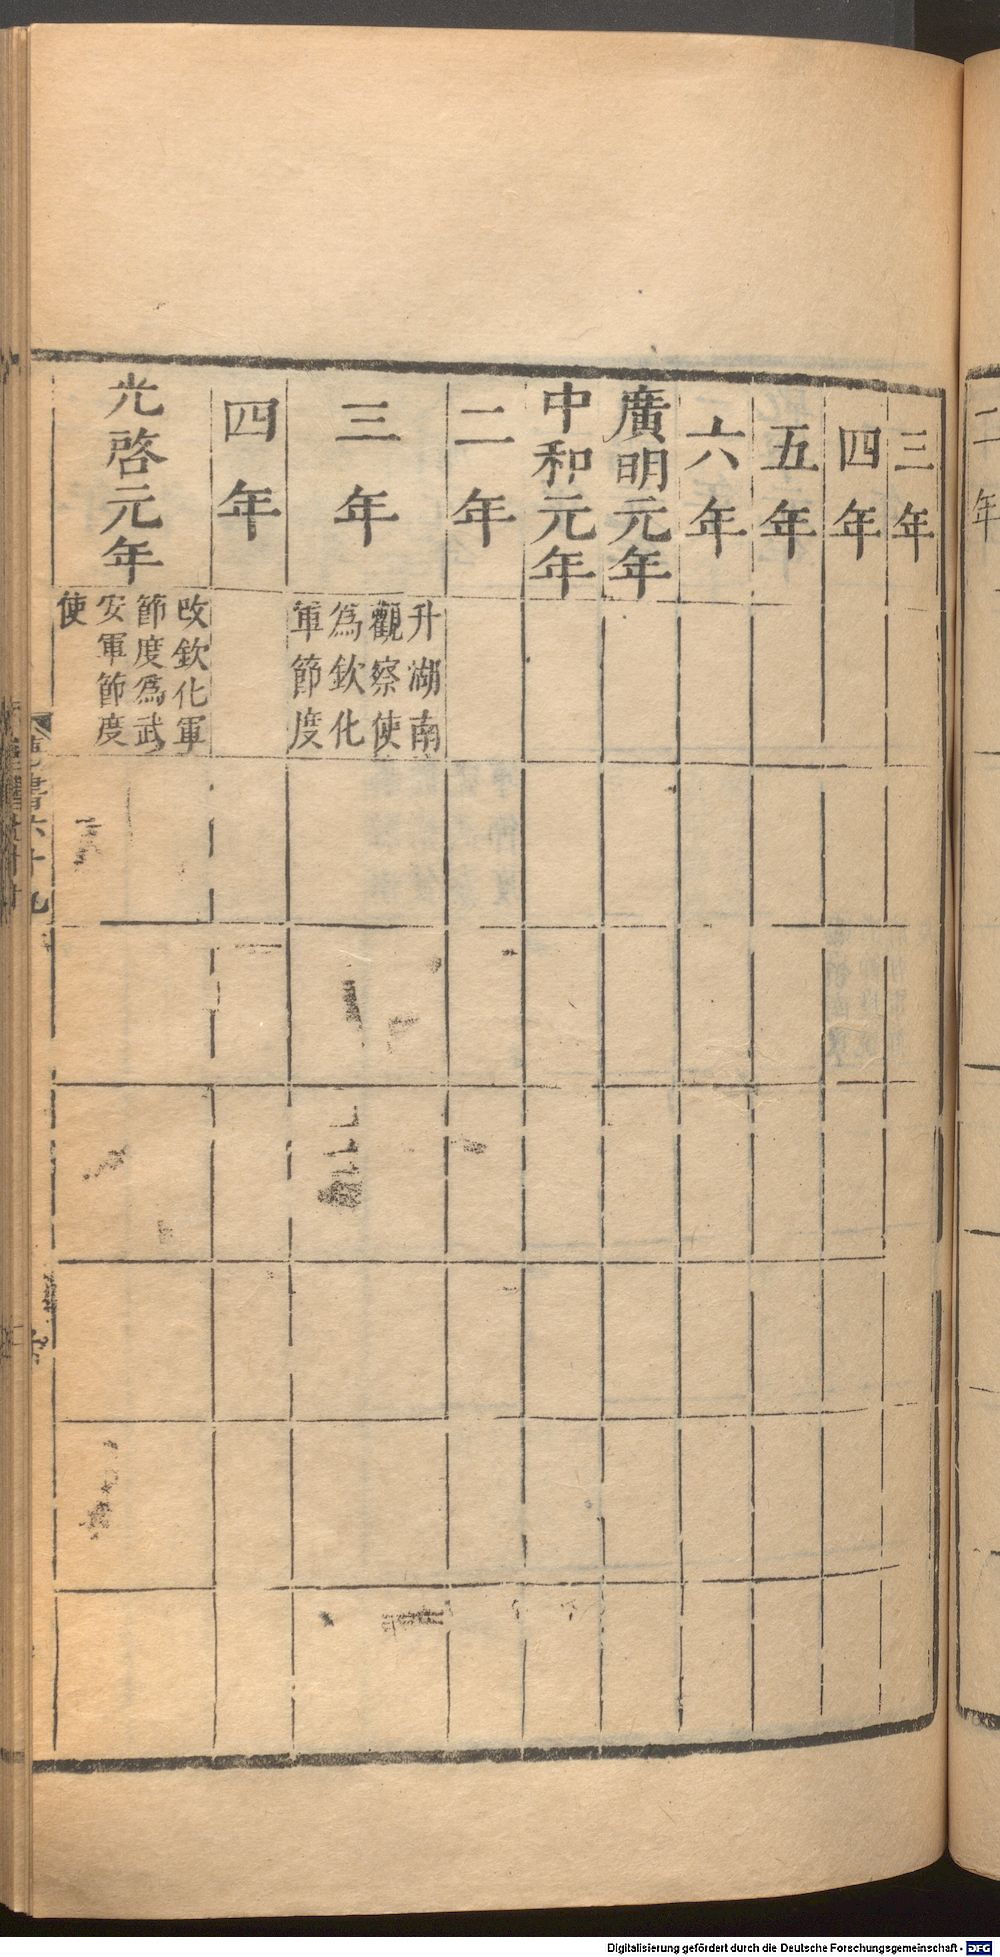 三年
四年
五年
六年
廣明元年
中和元年
二年
三年
升湖南
觀察使
爲欽化
軍節度
四年
光啓元年
改欽化軍
節度爲武
安軍節度
使
二年
Digitalisierung gefördert durch die Deutsche Forschungsgemeinschaft - DFG